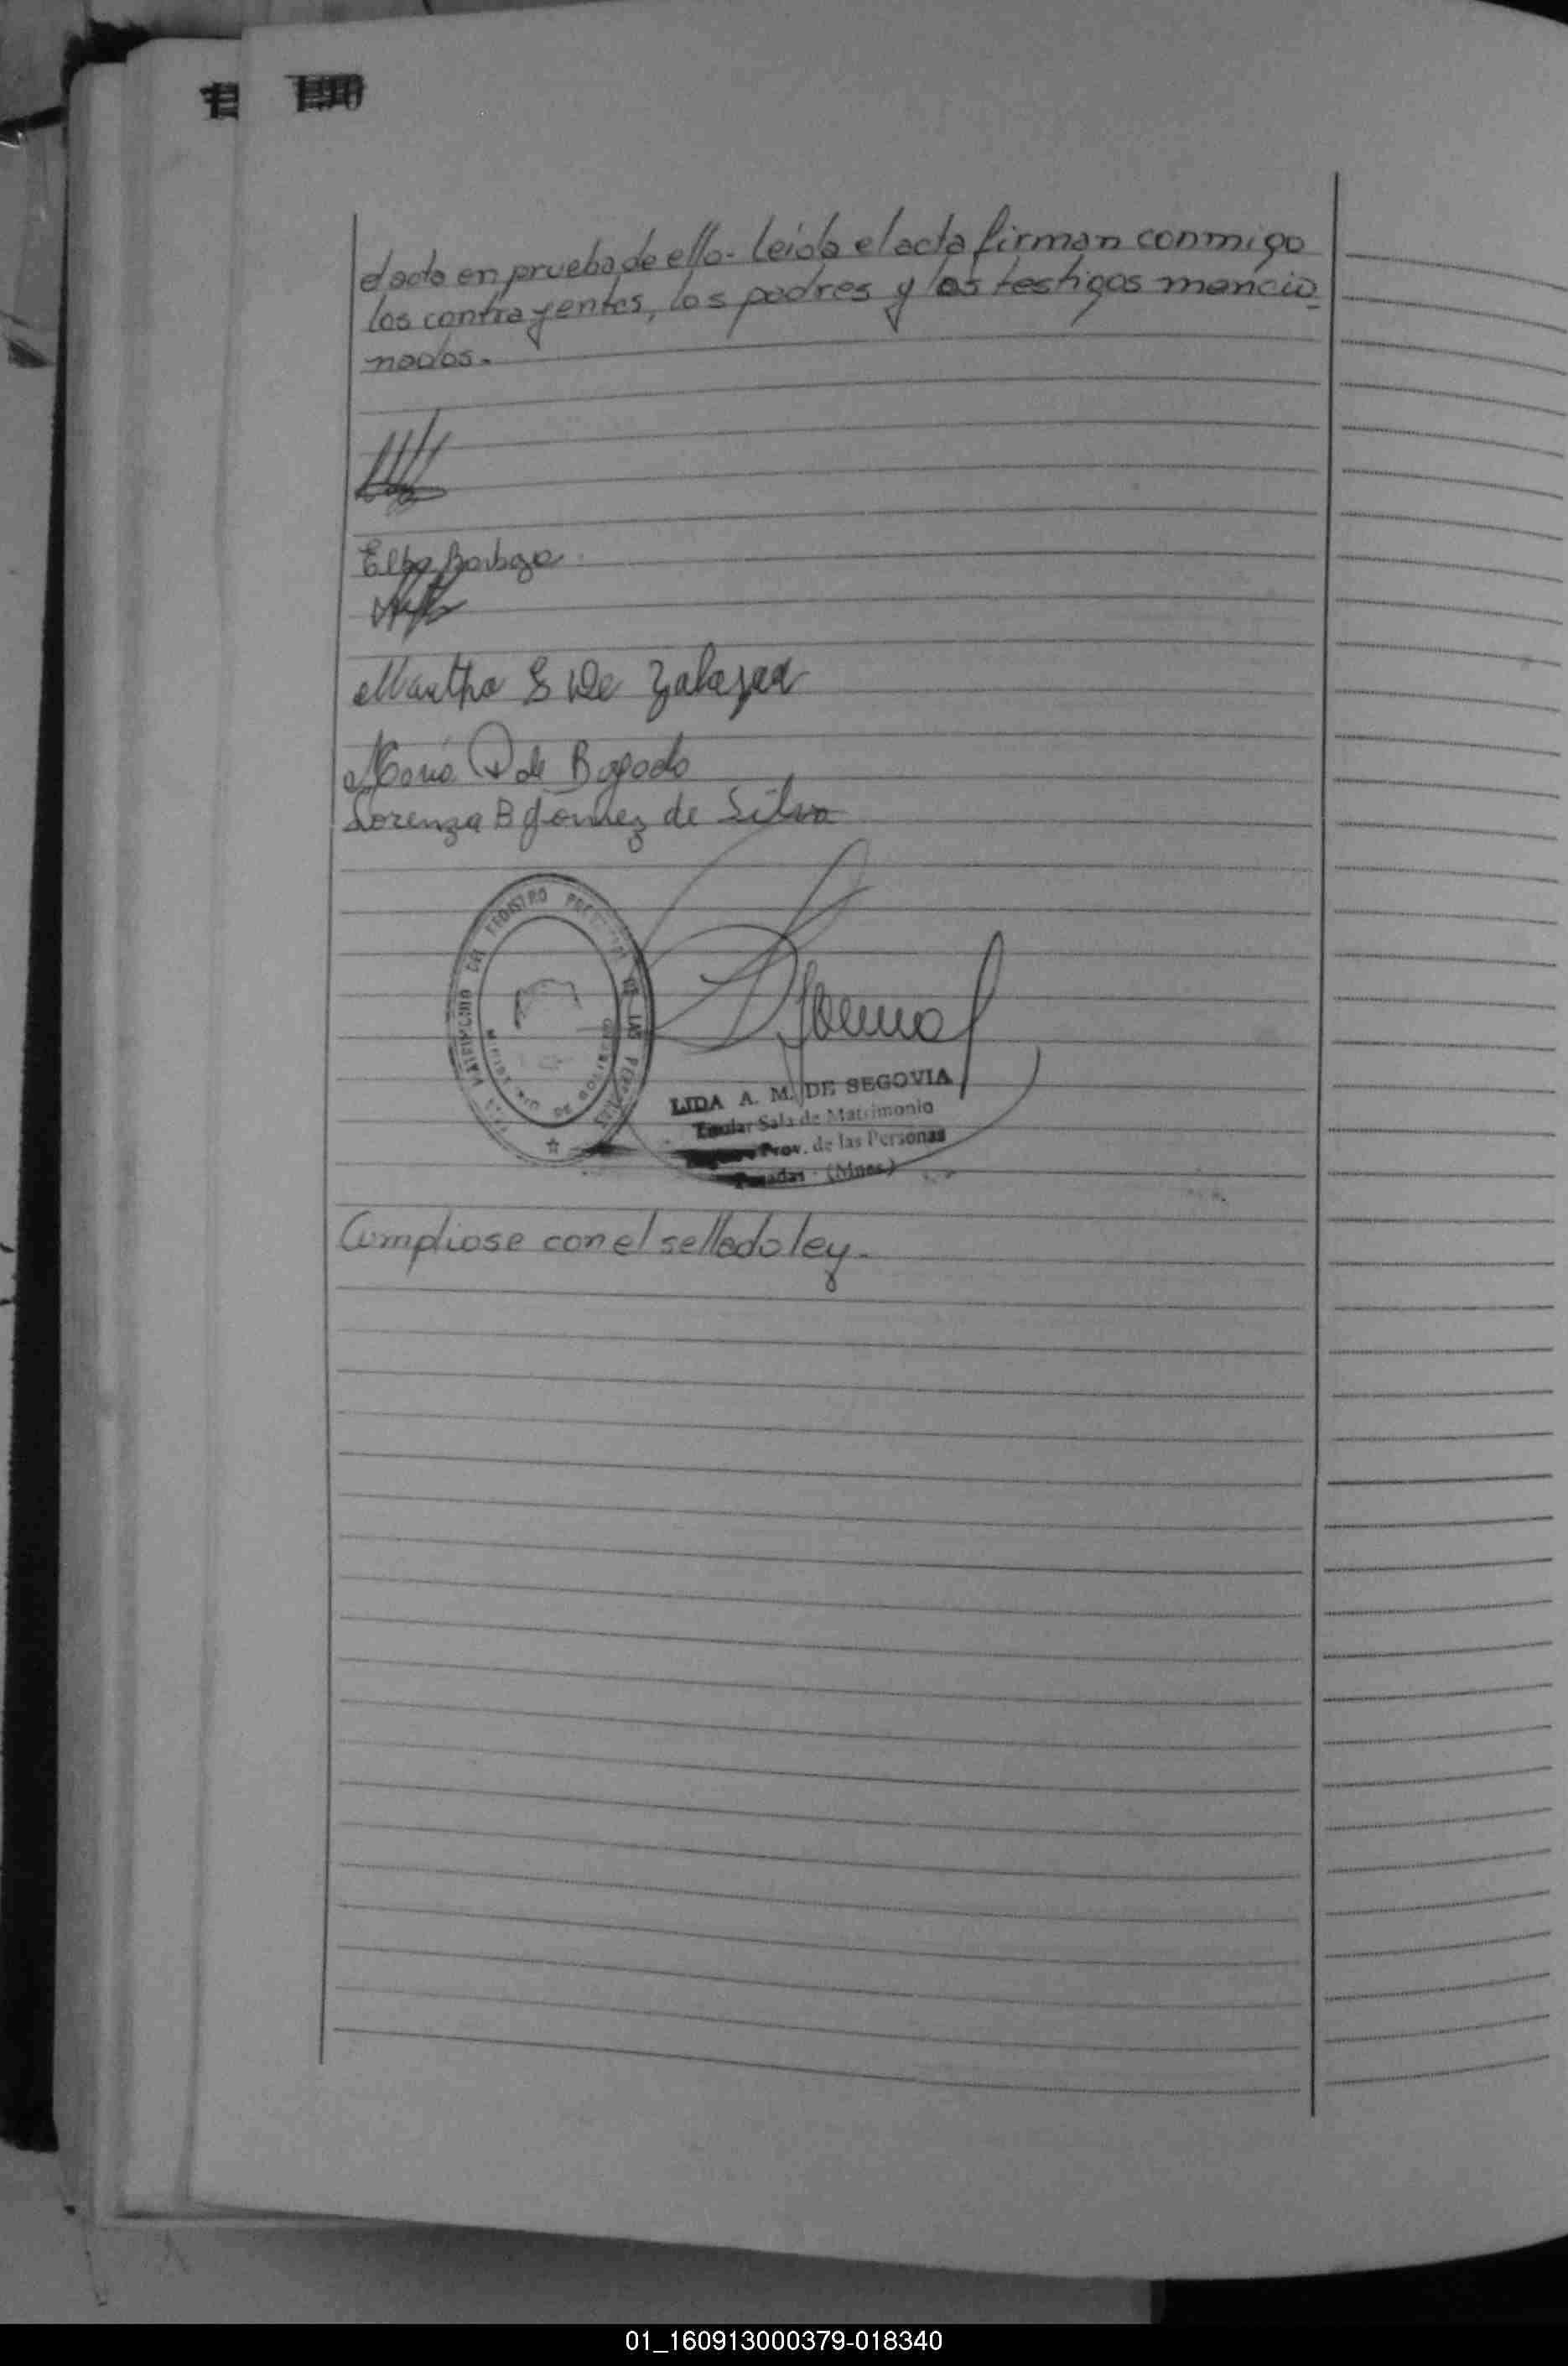 el acta en prueba de ello - leida el acta firman conmigo
los contrayentes, los padres y los testigos mencio
nados.-
Elba
Martha S de Zalazar
Maria de Bogado
Lorenza B Gomez de Silva
REGISTRO DE LAS
LIDA A. M. DE SEGOVIA
Titular Sala de Matrimonio
Prov. de las Personas
Posadas - (Mnes.)
Cumpliose con el sellado ley.-
01_160913000379-018340